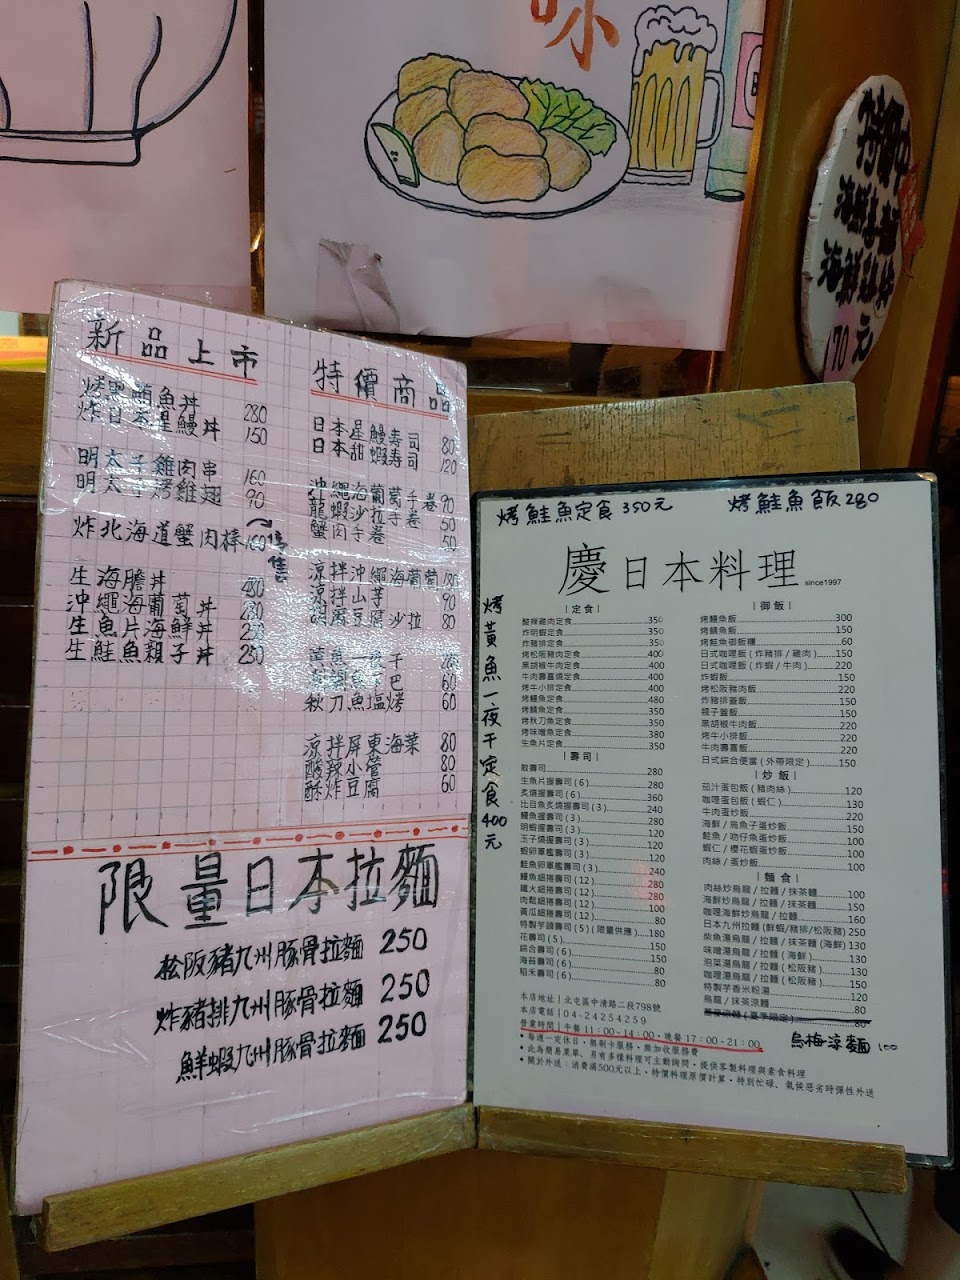 味
特
海鮮
海鮮
70元
新品上市
烤黑鮪魚丼 280
炸日本星鰻丼 150
明太子雞肉串 160
明太子烤雞翅 90
炸北海道蟹肉棒 160
停售
生海膽丼 480
沖繩海葡萄丼 280
生魚片海鮮丼 250
生鮭魚親子丼 250
特價商品
日本星鰻寿司 80
日本甜蝦寿司 120
沖繩海葡萄手卷 90
龍蝦沙拉手卷 50
蟹肉手卷 50
涼拌沖繩海葡萄 180
涼拌山芋 90
豆腐沙拉 80
魚一夜干
巴 60
秋刀魚塩烤 60
涼拌屏東海菜 80
酸辣小管 80
酥炸豆腐 60
限量日本拉麵
松阪豬九州豚骨拉麵 250
炸豬排九州豚骨拉麵 250
鮮蝦九州豚骨拉麵 250
烤鮭魚定食 350元
烤鮭魚飯 280
慶日本料理 since1997
烤黃魚一夜干定食400元
|定食|
酸辣雞肉定食 350
炸明蝦定食 350
炸豬排定食 350
烤松阪豬肉定食 400
黑胡椒牛肉定食 400
牛肉壽喜燒定食 400
烤牛小排定食 400
烤鰻魚定食 480
烤鯖魚定食 350
烤秋刀魚定食 350
烤味噌魚定食 380
生魚片定食 350
|壽司|
散壽司 280
生魚片握壽司(6) 280
炙燒握壽司(6) 360
比目魚炙燒握壽司(3) 240
鰻魚握壽司(3) 280
明蝦握壽司(3) 120
玉子燒握壽司(3) 120
蝦卵軍艦壽司(3) 120
鮭魚卵軍艦壽司(3) 240
鰻魚細捲壽司(12) 280
鐵火細捲壽司(12) 280
肉鬆細捲壽司(12) 100
黃瓜細捲壽司(12) 80
特製芋頭壽司(5)(限量供應) 180
花壽司(5) 100
綜合壽司(6) 150
海苔壽司(6) 80
稻禾壽司(6) 80
|御飯|
烤鰻魚飯 300
烤鯖魚飯 150
烤鮭魚御飯糰 60
日式咖哩飯(炸豬排/雞肉) 150
日式咖哩飯(炸蝦/牛肉) 220
炸蝦飯 150
烤松阪豬肉飯 220
炸豬排蓋飯 150
親子蓋飯 150
黑胡椒牛肉飯 220
烤牛小排飯 220
牛肉壽喜飯 220
日式綜合便當(外帶限定) 150
|炒飯|
茄汁蛋包飯(豬肉絲) 120
咖哩蛋包飯(蝦仁) 130
牛肉蛋炒飯 120
海鮮/烏魚子蛋炒飯 150
鮭魚/吻仔魚蛋炒飯 100
蝦仁/櫻花蝦蛋炒飯 100
肉絲/蛋炒飯 100
|麵食|
肉絲炒烏龍/拉麵/抹茶麵 100
海鮮炒烏龍/拉麵/抹茶麵 150
咖哩海鮮炒烏龍/拉麵 160
日本九州拉麵(鮮蝦/豬排/松阪豬) 250
柴魚湯烏龍/拉麵/抹茶麵(海鮮) 130
味噌湯烏龍/拉麵(海鮮) 130
泡菜湯烏龍/拉麵(松阪豬) 130
咖哩湯烏龍/拉麵(松阪豬) 150
特製芋香米粉湯 80
烏龍/抹茶涼麵 80
80
烏梅涼麵 100
本店地址|北屯區中清路二段798號
本店電話|04-24254259
營業時間|午餐11:00-14:00•晚餐17:00-21:00
•每週一定休日•無刷卡服務•無加收服務費
•此為簡易菜單、另有多樣料理可主動詢問•提供客製料理與素食料理
•關於外送:消費滿500元以上•特價料理原價計算•特別忙碌、氣候惡劣時彈性外送